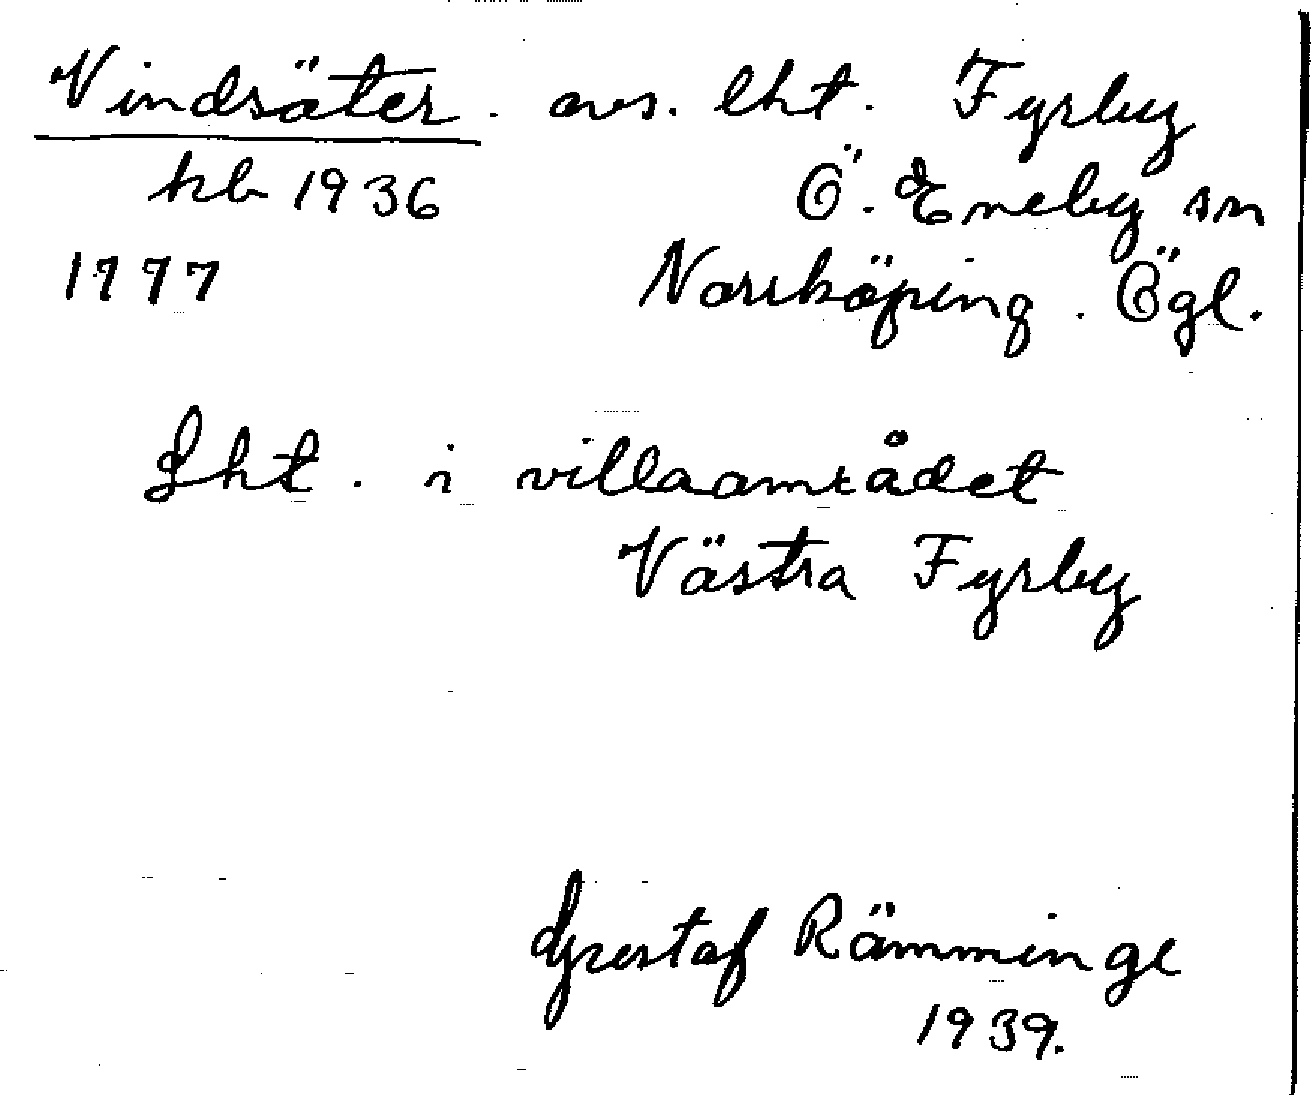 Vindsäter. avs. lht. Fyrby
kb 1936 Ö. Eneby sn
1777 Norrköping. Ögl.
Lht. i villaområdet
Västra Fyrby
Gustaf Rämminge
1939.